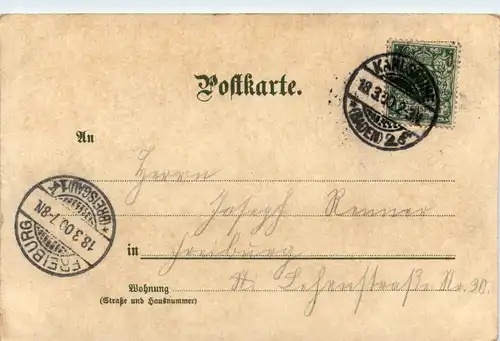 Postkarte.
KARLSRUHE
18.3.00.2-3N.
*(BADEN) 2 s*
An
Herrn
Joseph Renner
in Freiburg
Wohnung St. Lehenstraße Nr. 90.
(Straße und Hausnummer)
*(BREISGAU) 1*
18.3.00.7-8N.
FREIBURG